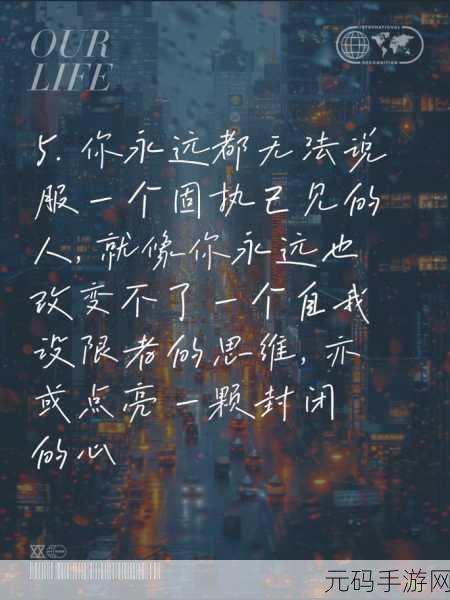 OUR
LIFE
INTERNATIONAL
RECOGNITION
5. 你永远都无法说
服一个固执己见的
人, 就像你永远也
改变不了一个自我
设限者的思维, 亦
或点亮一颗封闭
的心
元码手游网